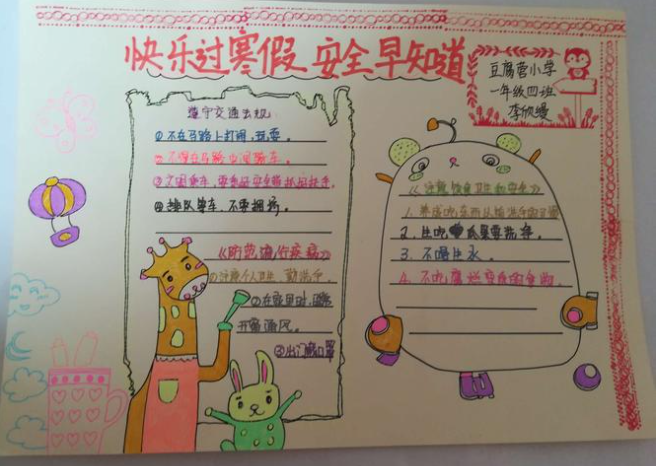 快乐过寒假 安全早知道
豆腐营小学
一年级四班
李欣嫚
遵守交通法规
①不在马路上打闹，玩耍。
②不得在马路中间骑车。
③乘车，要系好安全带抓好扶手。
④排队等车，不要拥挤。
《防范流行疾病》
①注意个人卫生，勤洗手。
②在家里时
开窗通风。
③出门戴口罩
《注意饮食卫生和安全》
1.养成吃东西以前洗手的习惯
2.生吃瓜果要洗净。
3.不喝生水。
4.不吃腐烂变质的食物。